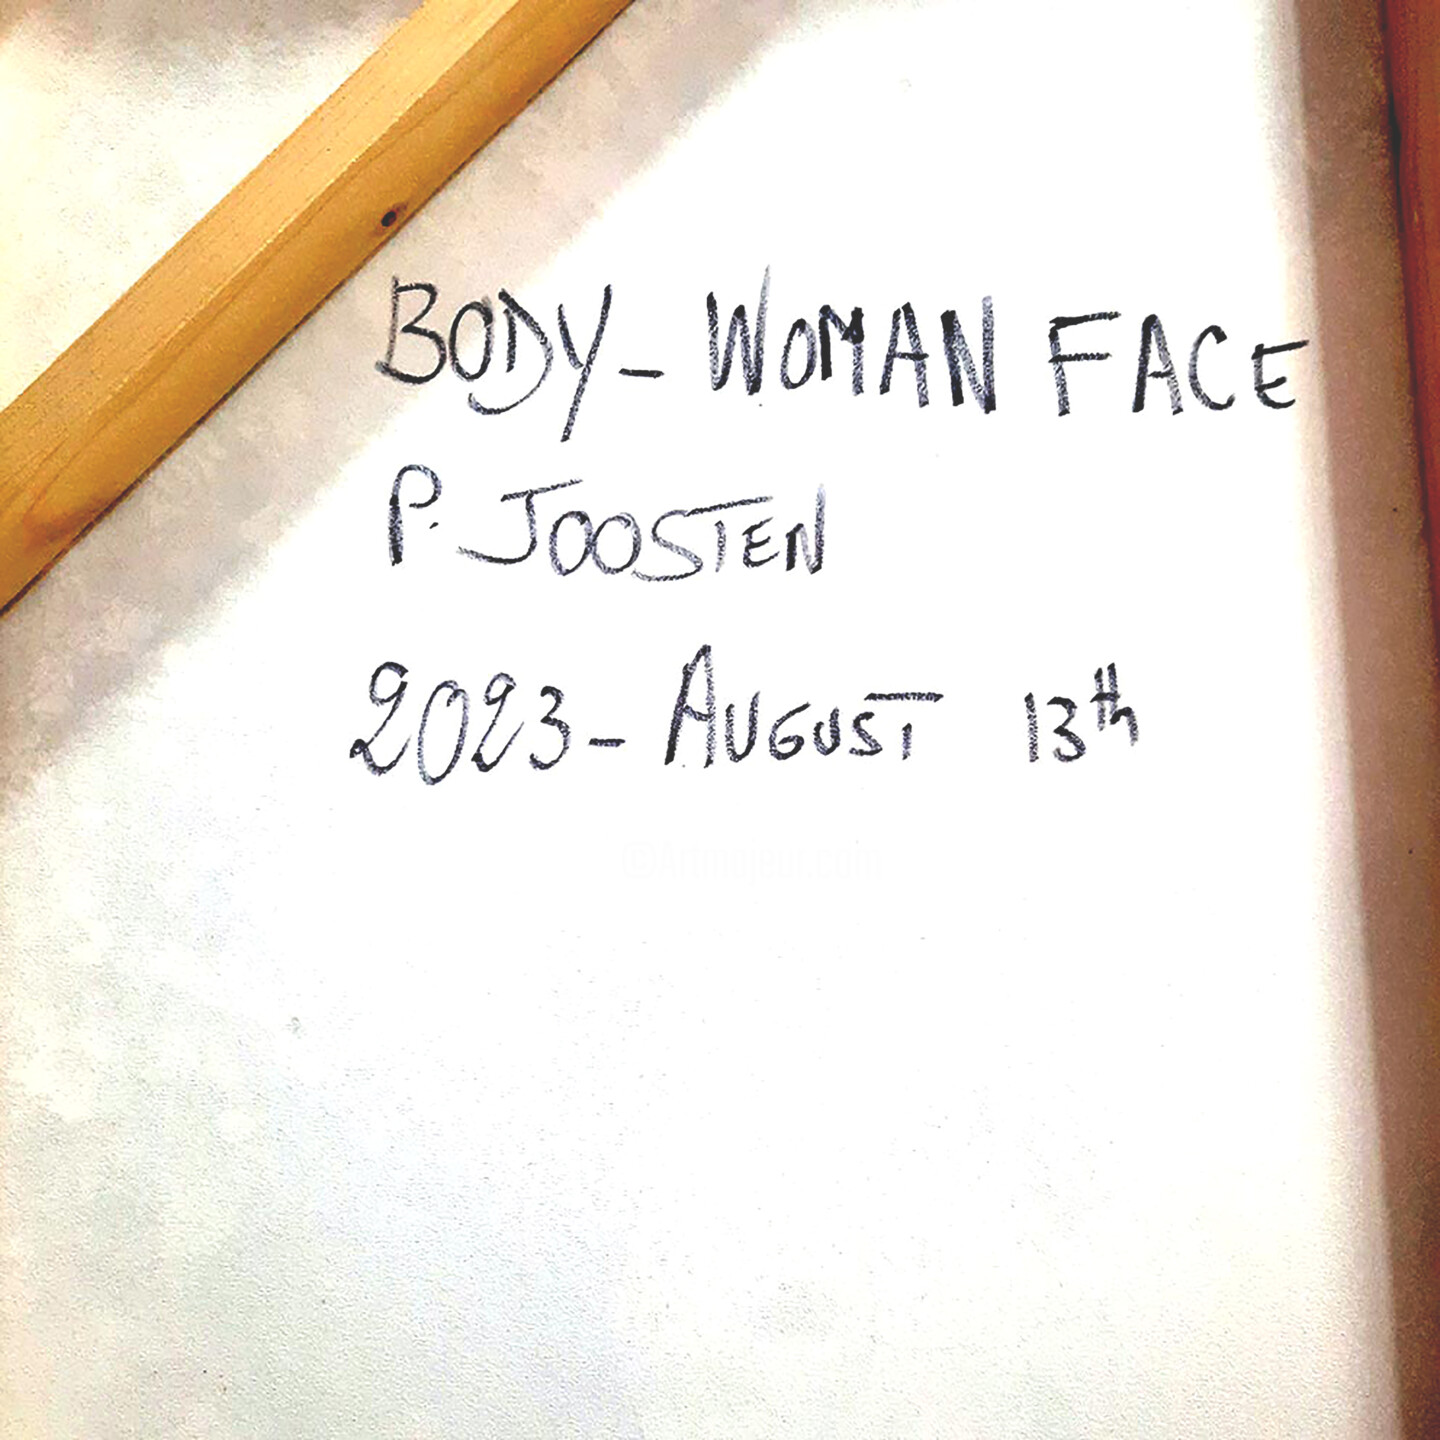 BODY - WOMAN FACE
P. JOOSTEN
2023 - AUGUST 13th
©Artmajeur.com